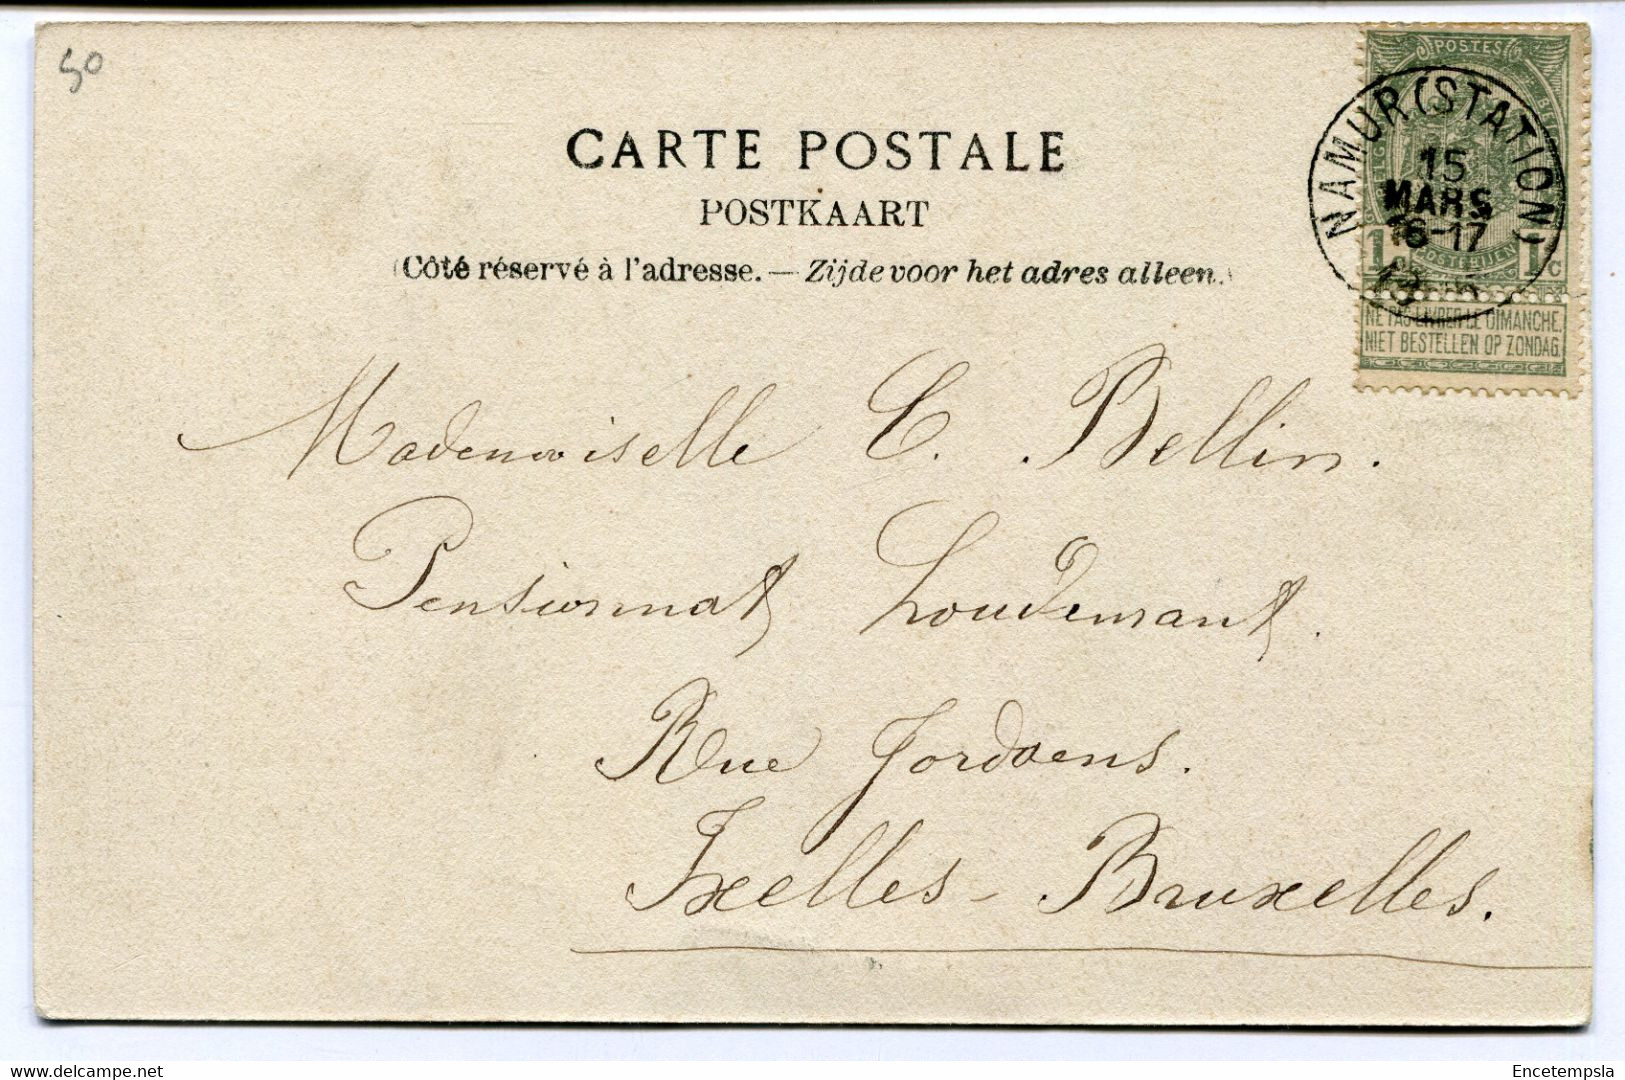 50
CARTE POSTALE
POSTKAART
(Côté réservé à l'adresse. — Zijde voor het adres alleen.)
POSTES
NAMUR (STATION)
15
MARS
16-17
1 POSTERIJEN 1c
NE PAS LIVRER LE DIMANCHE.
NIET BESTELLEN OP ZONDAG.
Mademoiselle C. Bellin.
Pensionnat Loudemant.
Rue Jordaens.
Ixelles - Bruxelles.
delcampe.net
Encetempsla